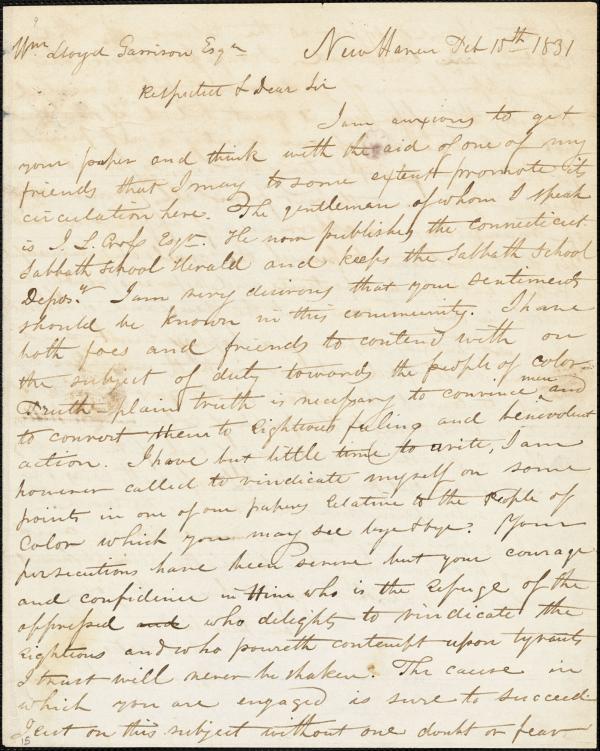 Wm Lloyd Garrison Esqr New Haven Oct 15th 1831
Respected & Dear Sir
I am anxious to get
your paper and think with the aid of one of my
friends that I may to some extent promote its
circulation here. The gentleman of whom I speak
is I. L. Esqr. He now publishes the Connecticut
Sabbath School Herald and keeps the Sabbath School
Deposy. I am very desirous that your sentiments
should be known in this community. I have
both foes and friends to contend with on
the subject of duty towards the people of color.
Truth – plain truth is necessary to convince men and
to convert them to righteous feeling and benevolent
action. I have but little time to write, I am
however called to vindicate myself on some
points in one of our papers relative to the People of
Color which you may see bye & bye. Your
persecutions have been severe but your courage
and confidence in Him who is the refuge of the
oppressed and who delights to vindicate the
righteous and who poureth contempt upon tyrants
I trust will never be shaken. The cause in
which you are engaged is sure to succeed
on this subject without one doubt or fear
15